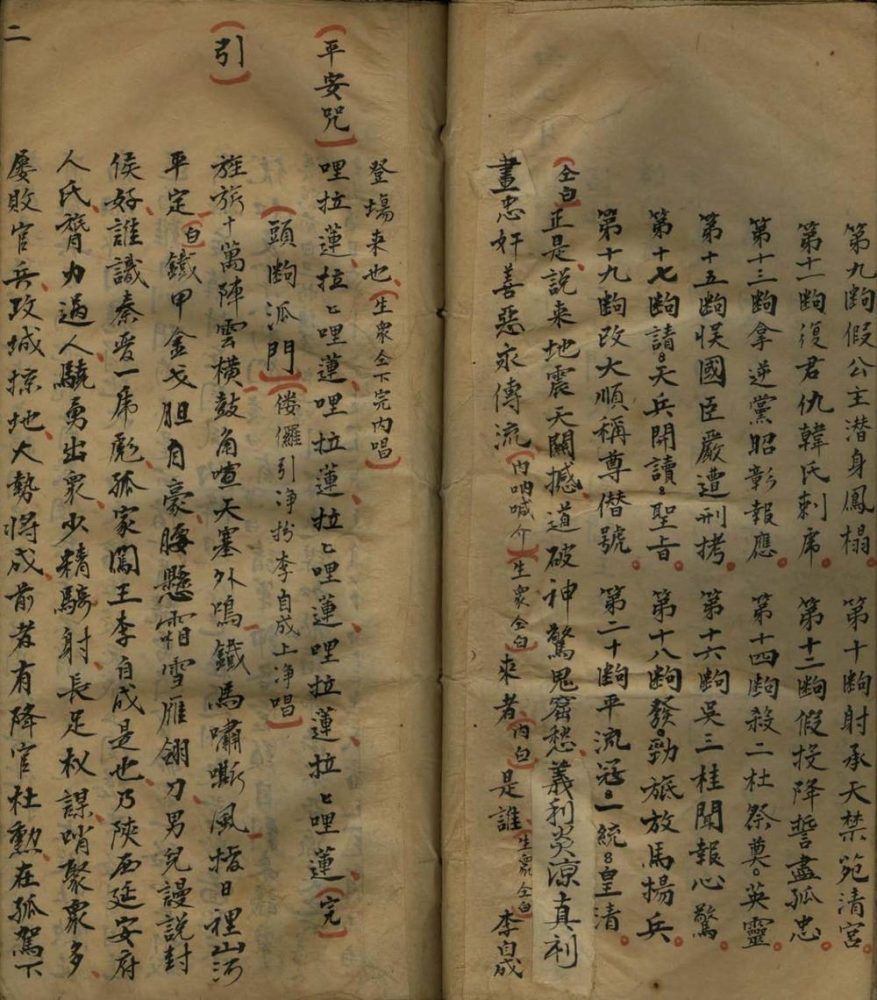 第九齣假公主潜身鳳榻。第十齣射承天禁苑清宮。
第十一齣復君仇韓氏刺席。第十二齣假投降誓盡孤忠。
第十三齣拿逆黨昭彰報應。第十四齣殺二杜祭奠英靈。
第十五齣悮國臣嚴遭刑拷。第十六齣吳三桂聞報心驚。
第十七齣請天兵開讀聖旨。第十八齣發勁旅放馬揚兵。
第十九齣改大順稱尊僭號。第二十齣平流冦一統皇清。
(仝白)正是、説來地震天関撼、道破神驚鬼窟愁、義利炎凉真利
畫、忠奸善惡永傳流、(内吶喊介)(生衆仝白)來者(内白)是誰、(生衆仝白)李自成
登塲來也(生衆仝下完内唱)
(平安咒)哩拉蓮拉匕哩蓮、哩拉蓮拉匕哩蓮哩拉蓮拉匕哩蓮(完)
(頭齣派門)(僂儸引净扮李自成上净唱)
(引)旌旂十萬陣雲橫、鼓角喧天塞外鳴、鐵馬嘯嘶風、指日裡山河
平定、(白)鐵甲金戈胆自豪、腰懸霜雪雁翎刀、男兒謾説封
侯好、誰識秦晋一席彪、孤家闖王李自成是也、乃陝西延安府
人氏、膂力過人、驍勇出衆、少精騎射、長足权謀、哨聚衆多、
屡敗官兵、攻城掠地、大勢將成、前者有降官杜勲、在孤駕下
二